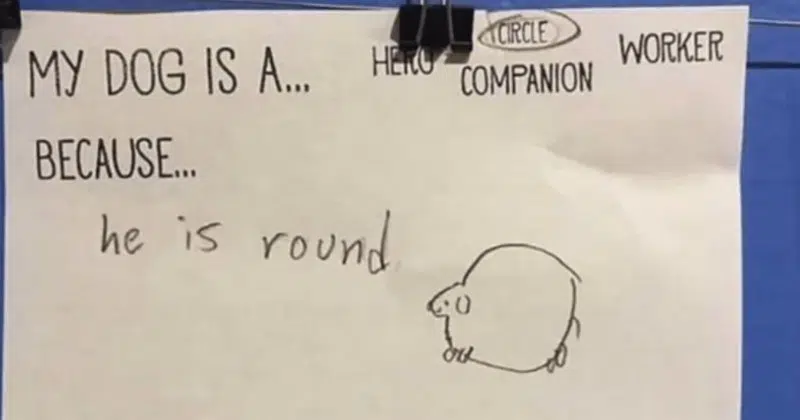 MY DOG IS A...
HERO
CIRCLE
COMPANION
WORKER
BECAUSE...
he is round